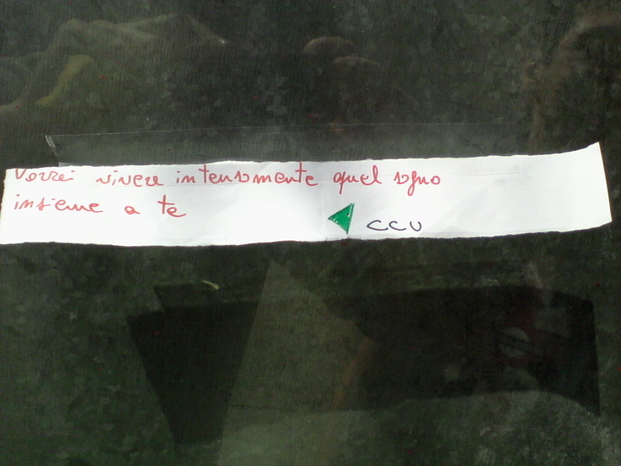 vorrei vivere intensamente quel sogno
insieme a te
CCU